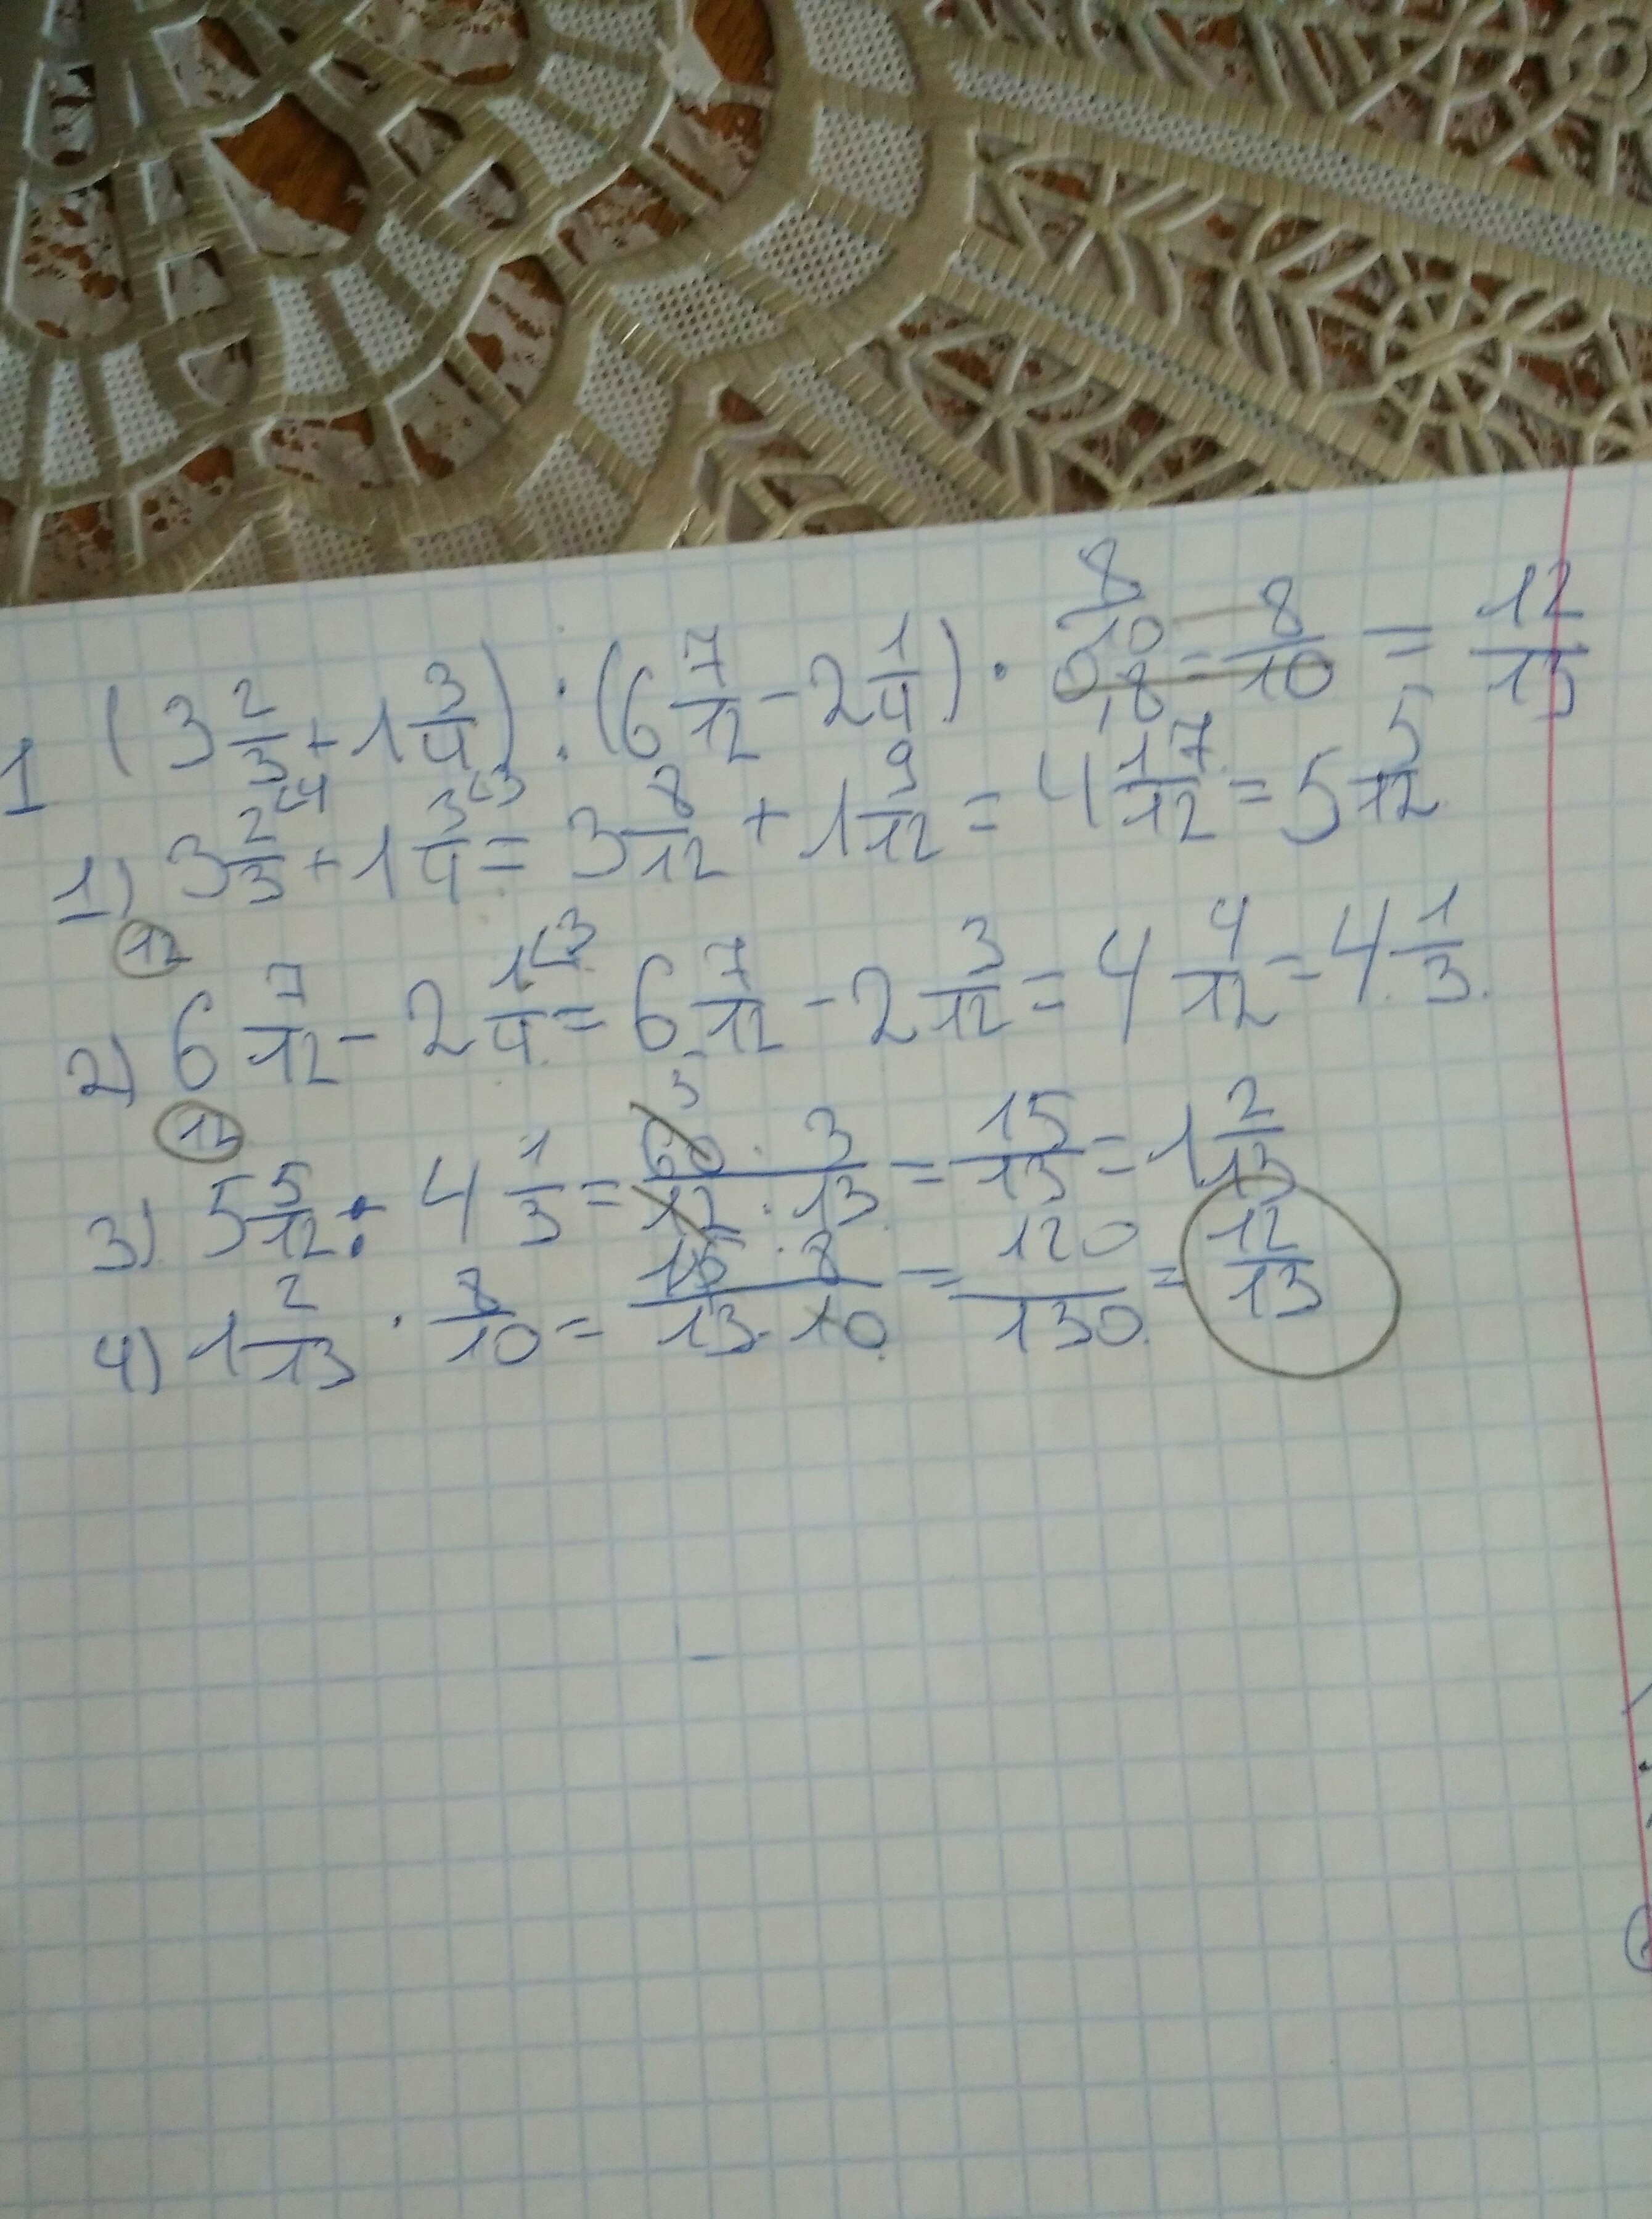 1 (3 2/3 + 1 3/4) : (6 7/12 - 2 1/4) · 8/10 0,8 = 8/10 = 12/13
1) 3 2/3 ⁴ + 1 3/4 ³ = 3 8/12 + 1 9/12 = 4 17/12 = 5 5/12
12
2) 6 7/12 - 2 1/4 ³ = 6 7/12 - 2 3/12 = 4 4/12 = 4 1/3
12
3) 5 5/12 : 4 1/3 = 60 · 3 / 12 · 13 = 15/13 = 1 2/13
4) 1 2/13 · 8/10 = 15 · 8 / 13 · 10 = 120/130 = 12/13